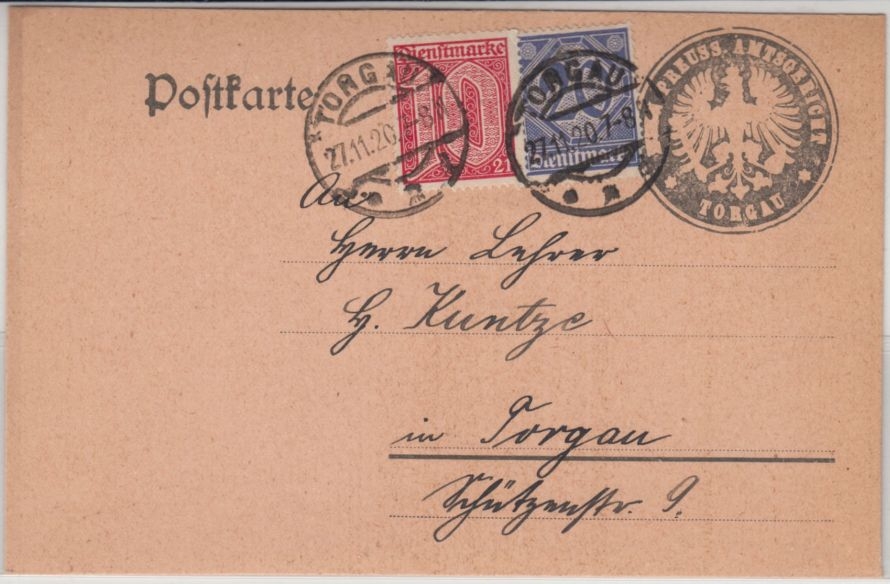 Postkarte
Dienstmarke
10
21
20
Dienstmarke
TORGAU
27.11.20. 7-8 N
TORGAU
27.11.20. 7-8 N
PREUSS. AMTSGERICHT
TORGAU
An
Herrn Lehrer
H. Kuntze
in Torgau
Schützenstr. 9.